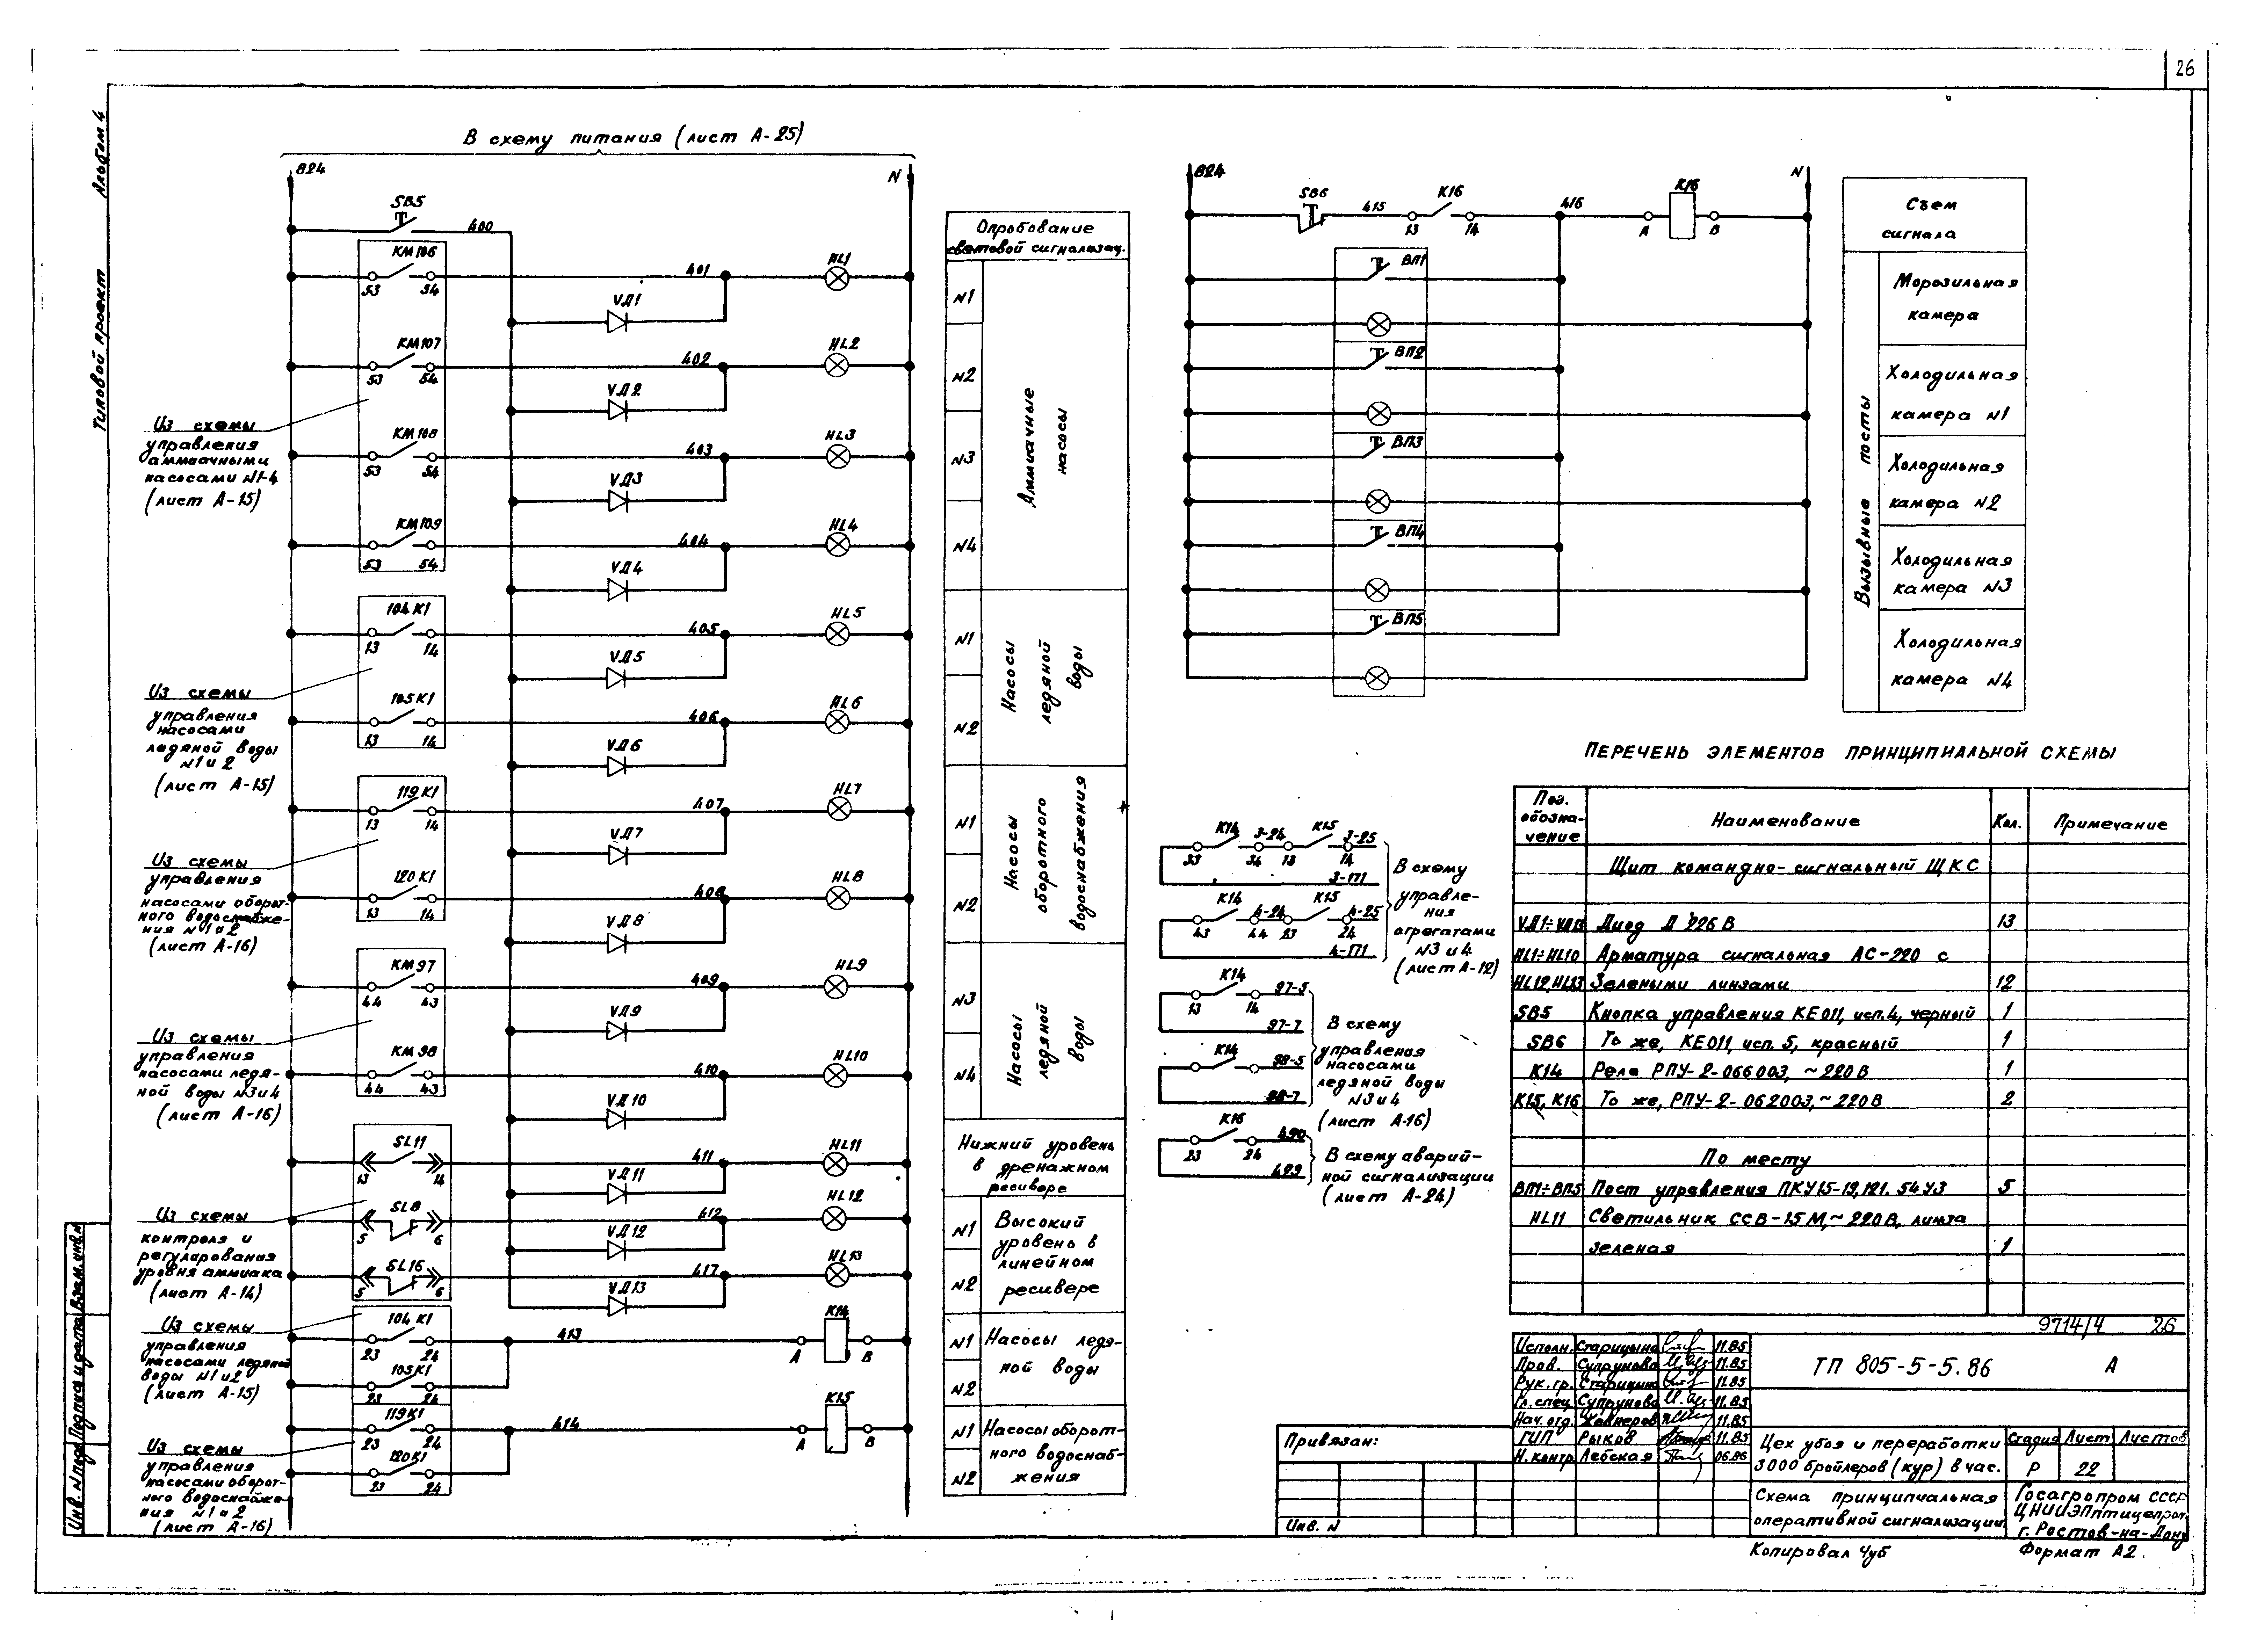 26
Альбом 4
Типовой проект
В схему питания (лист А-25)
В24
N
SB5
400
КМ106
53 54
401
HL1
VД1
КМ107
53 54
402
HL2
VД2
КМ108
53 54
403
HL3
VД3
КМ109
53 54
404
HL4
VД4
104К1
13 14
405
HL5
VД5
105К1
13 14
406
HL6
VД6
119К1
13 14
407
HL7
VД7
120К1
13 14
408
HL8
VД8
КМ97
44 43
409
HL9
VД9
КМ98
44 43
410
HL10
VД10
SL11
13 14
411
HL11
VД11
SL8
5 6
412
HL12
VД12
SL16
5 6
417
HL13
VД13
104К1
23 24
413
К14
А В
105К1
23 24
119К1
23 24
414
К15
А В
120К1
23 24
Из схемы
управления
аммиачными
насосами N1-4
(лист А-15)
Из схемы
управления
насосами
ледяной воды
N1 и 2
(лист А-15)
Из схемы
управления
насосами оборот-
ного водоснабже-
ния N1 и 2
(лист А-16)
Из схемы
управления
насосами ледя-
ной воды N3 и 4
(лист А-16)
Из схемы
контроля и
регулирования
уровня аммиака
(лист А-14)
Из схемы
управления
насосами ледяной
воды N1 и 2
(лист А-15)
Из схемы
управления
насосами оборот-
ного водоснабже-
ния N1 и 2
(лист А-16)
Опробование
световой сигнализац.
N1
N2
N3
N4
Аммиачные
насосы
N1
N2
Насосы
ледяной
воды
N1
N2
Насосы
оборотного
водоснабжения
N3
N4
Насосы
ледяной
воды
Нижний уровень
в дренажном
ресивере
N1
N2
Высокий
уровень в
линейном
ресивере
N1
N2
Насосы ледя-
ной воды
N1
N2
Насосы оборот-
ного водоснаб-
жения
В24
N
SB6
415
К16
13 14
416
К16
А В
ВП1
ВП2
ВП3
ВП4
ВП5
Съем
сигнала
Вызывные посты
Морозильная
камера
Холодильная
камера N1
Холодильная
камера N2
Холодильная
камера N3
Холодильная
камера N4
К14 3-24 К15 3-25
33 34 13 14
3-171
К14 4-24 К15 4-25
43 44 23 24
4-171
В схему
управле-
ния
агрегатами
N3 и 4
(лист А-12)
К14 97-5
13 14
97-7
К14 98-5
98-7
В схему
управления
насосами
ледяной воды
N3 и 4
(лист А-16)
К16 490
23 24
499
В схему аварий-
ной сигнализации
(лист А-24)
ПЕРЕЧЕНЬ ЭЛЕМЕНТОВ ПРИНЦИПИАЛЬНОЙ СХЕМЫ
Поз. обозна-чение Наименование Кол. Примечание
Щит командно-сигнальный ЩКС
VД1÷VД13 Диод Д 226 В 13
HL1÷HL10 Арматура сигнальная АС-220 с
HL12,HL13 Зелеными линзами 12
SB5 Кнопка управления КЕ011, исп.4, черный 1
SB6 То же, КЕ011, исп. 5, красный 1
К14 Реле РПУ-2-066003, ~220В 1
К15, К16 То же, РПУ-2-062003, ~220В 2
По месту
ВП1÷ВП5 Пост управления ПКУ15-19,121. 54У3 5
HL11 Светильник ССВ-15М, ~220В, линза
зеленая 1
9714/4 26
Исполн. Старицына 11.85
Пров. Супрунова 11.85
Рук.гр. Старицына 11.85
Гл.спец. Супрунова 11.85
Нач.отд. 11.85
ГИП Рыков 11.85
Н.контр. Лебская 06.86
ТП 805-5-5.86 А
Цех убоя и переработки
3000 бройлеров (кур) в час.
Стадия Лист Листов
Р 22
Схема принципиальная
оперативной сигнализации
Госагропром СССР
ЦНИИЭПптицепром
г. Ростов-на-Дону
Привязан:
Инв. N
Копировал Чуб
Формат А2.
Инв. N подл. Подпись и дата Взам. инв. N